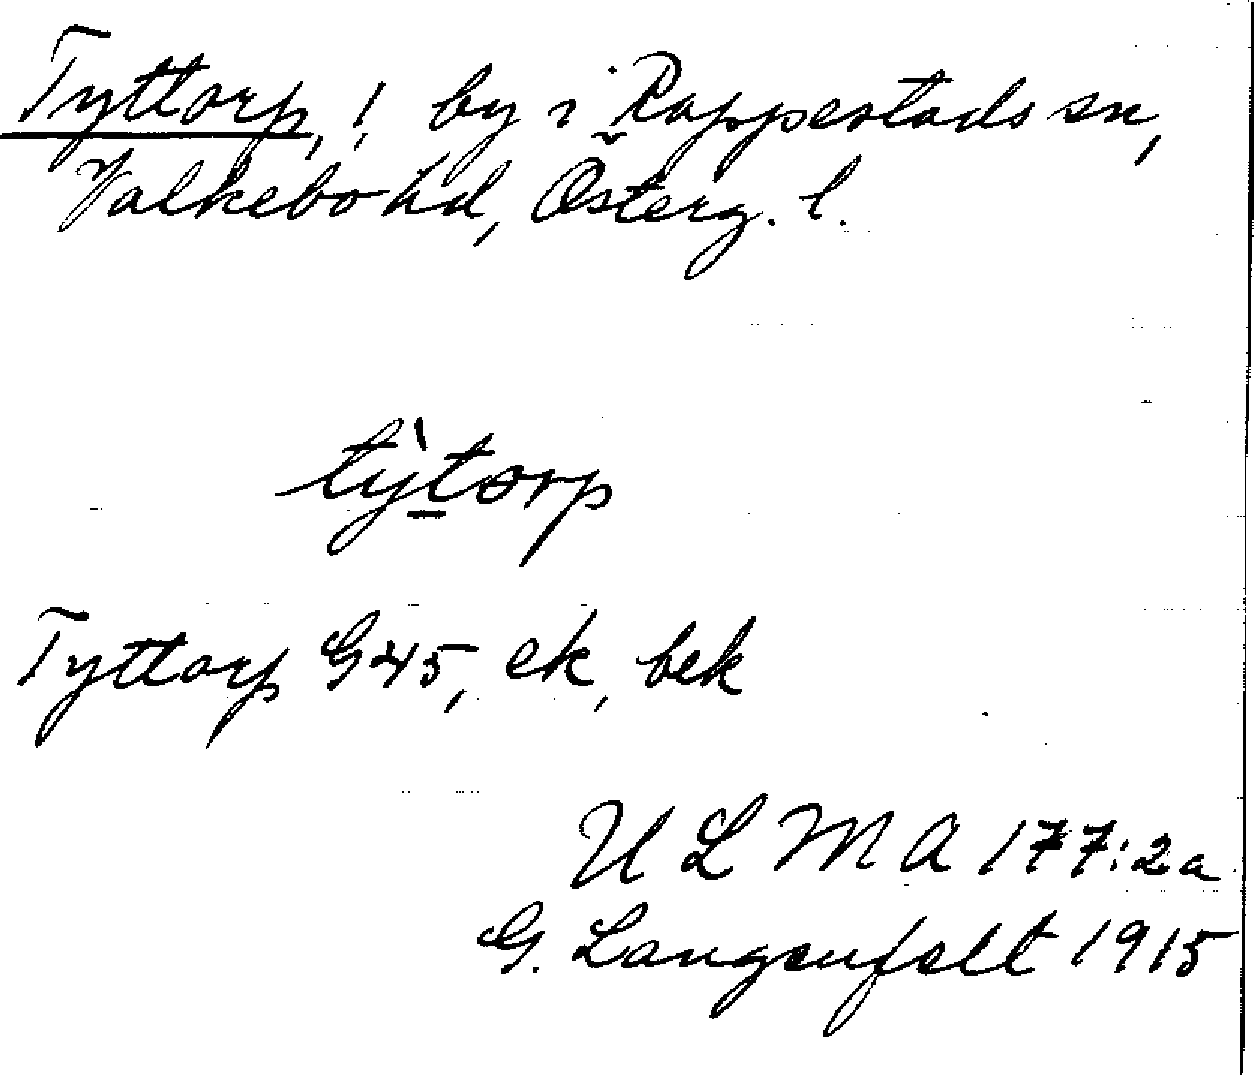 Tyttorp, ! by i Rappestads sn,
Valkebo hd, Österg. l.
ty̆̀torp
Tyttorp G45, ek, bek
ULMA 177:2a
G. Langenfelt 1915